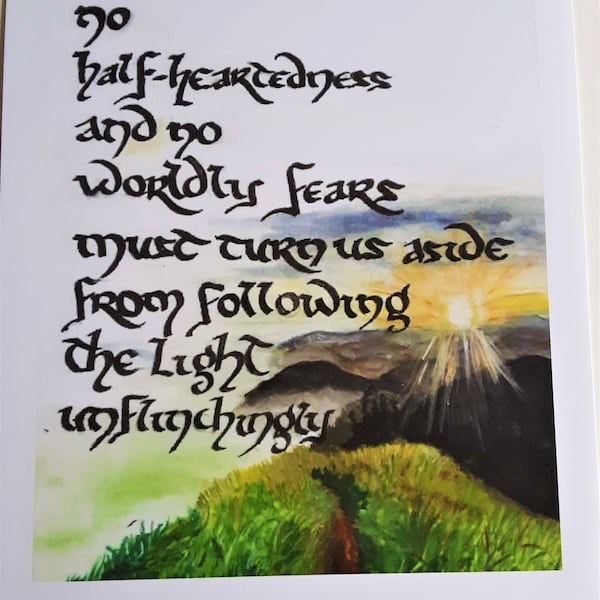 no
half-heartedness
and no
worldly fears
must turn us aside
from following
the Light
unflinchingly